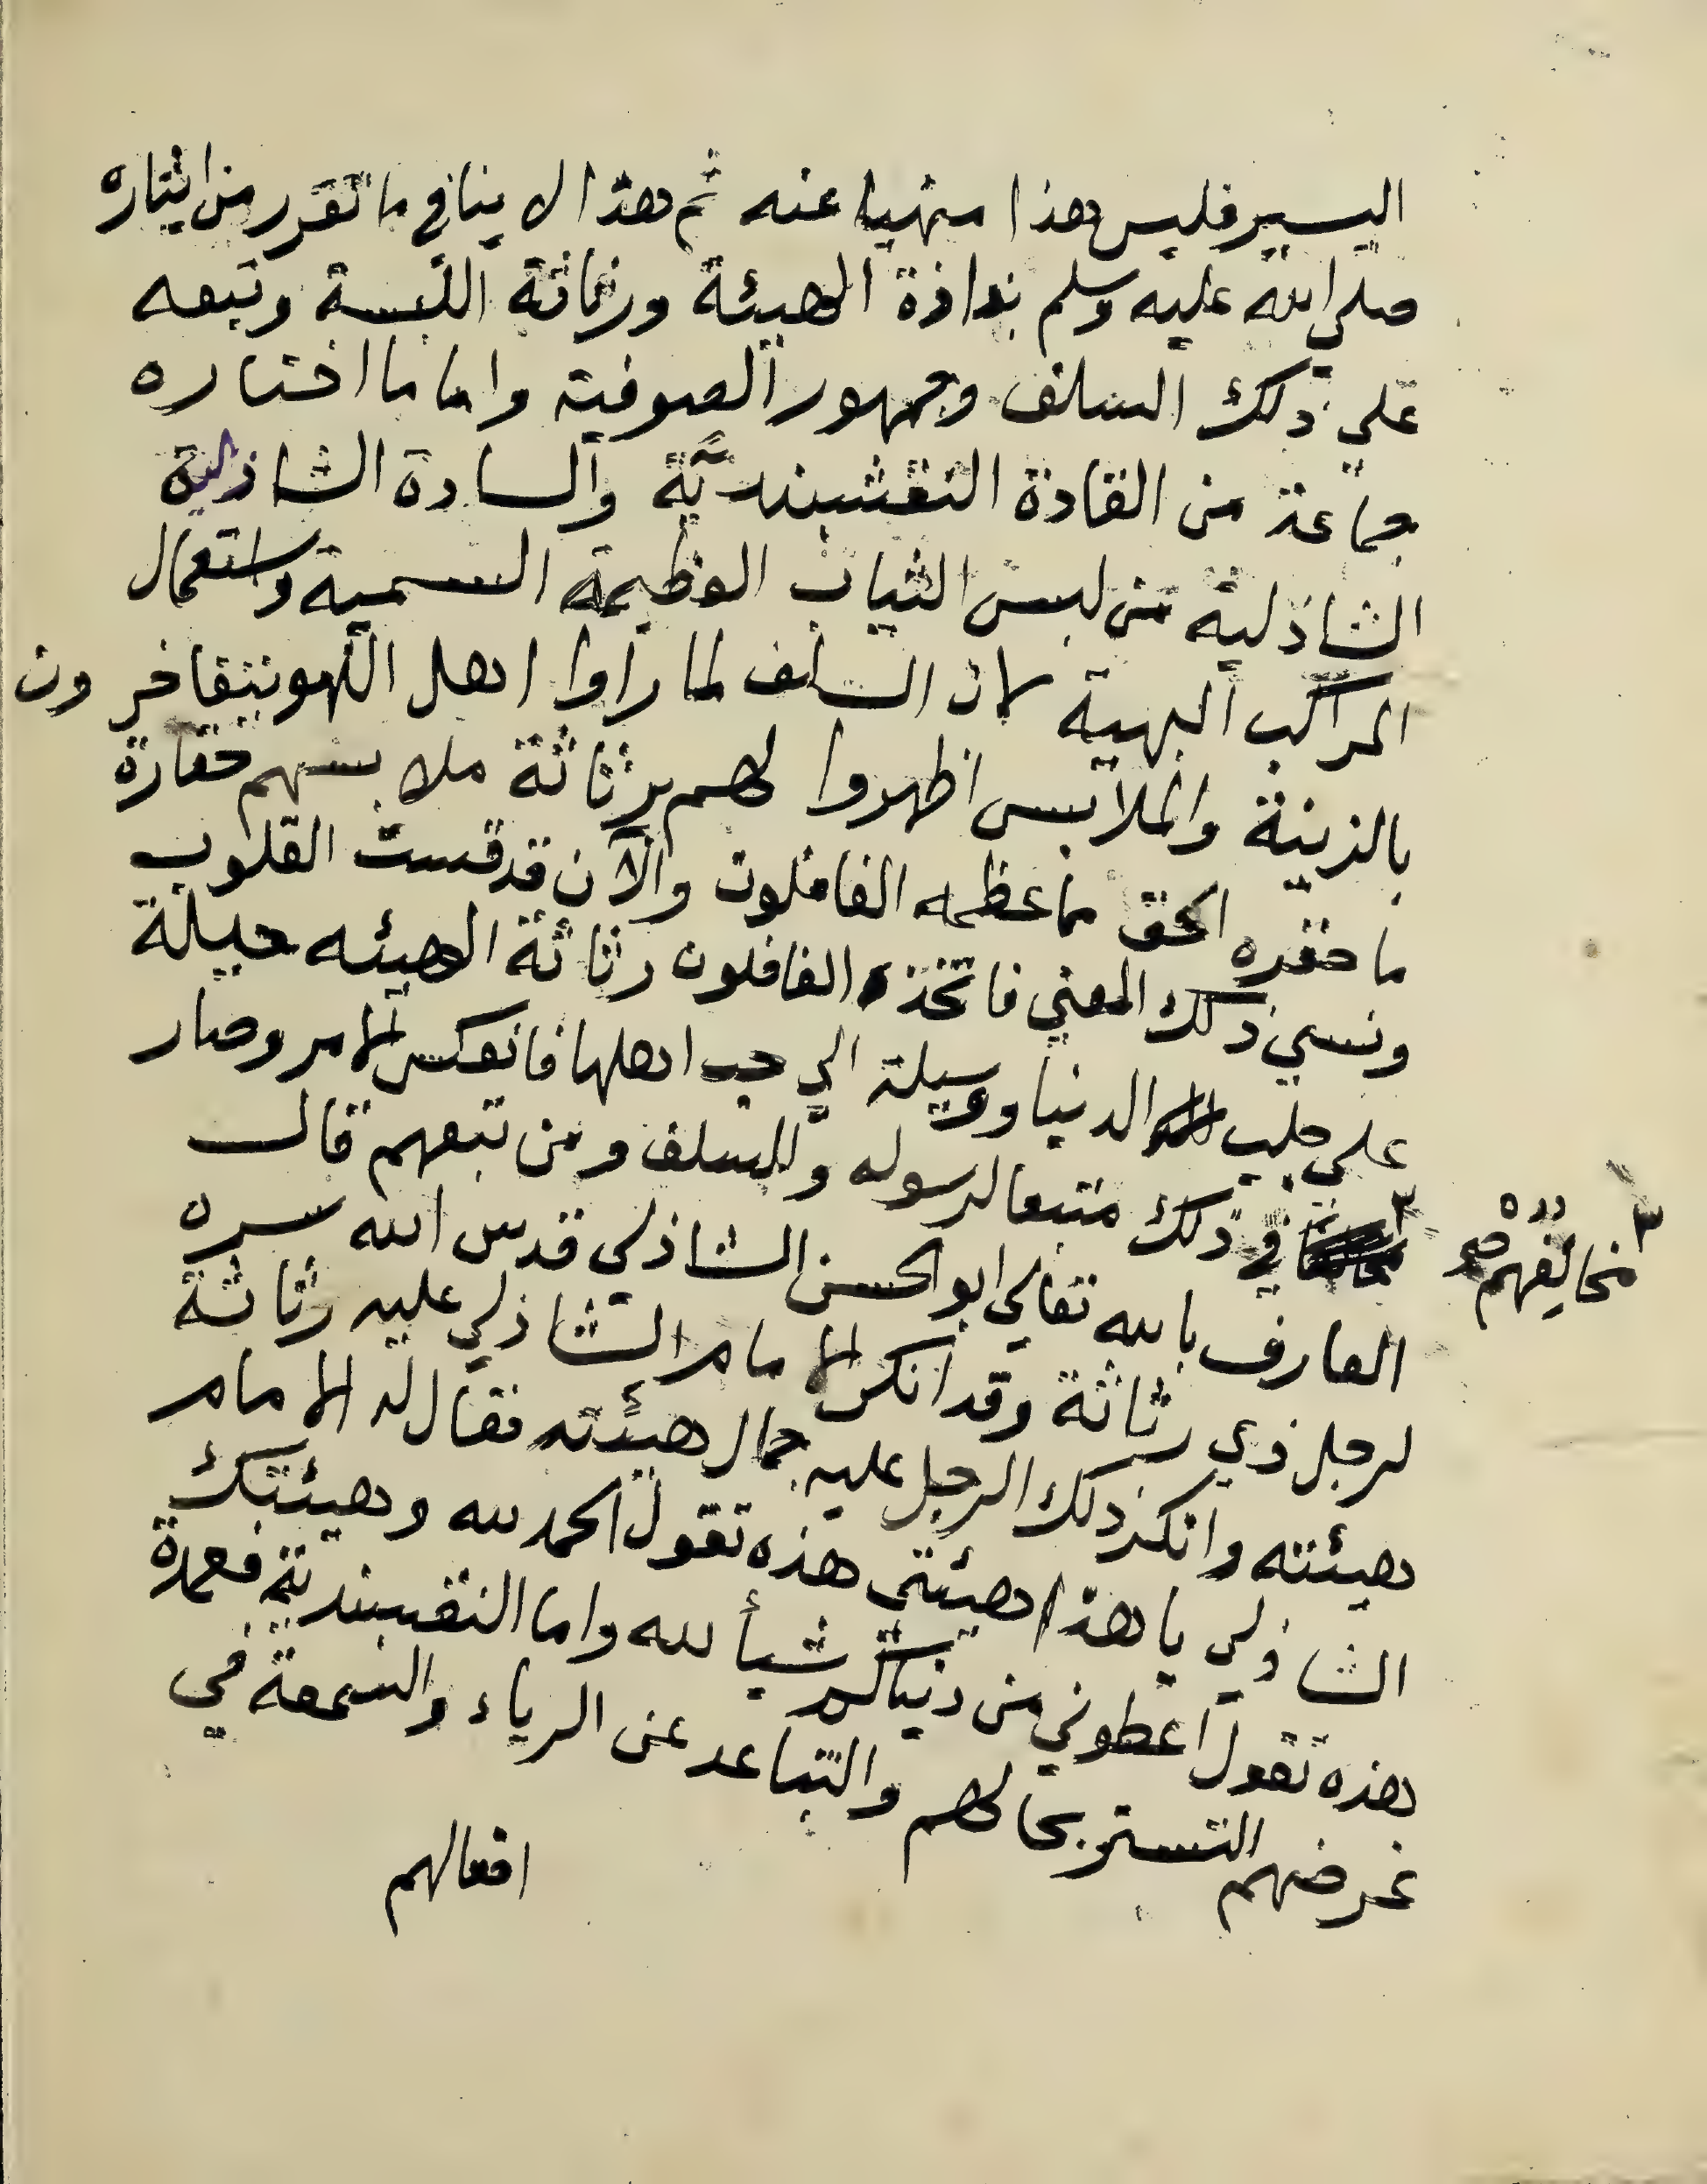 اليسير فليس هذا منهيا عنه ثم هذا لا ينافي ما تقرر من ايثاره
صلي الله عليه وسلم بذاذة الهيئة ورثاثة اللبسة وتبعه
علي ذلك السلف وجمهور الصوفية واما ما اختاره
جماعة من القادة النقشبنديّة والسادة الشاذلية
الشاذلية من لبس الثياب العظيمة السمية واستعمال
المراكب البهية لان السلف لما راوا اهل اللهو يتفاخرون
بالزينة والملابس اظهروا لهم برثاثة ملابسهم حقارة
ما حقره الحق مما عظمه الغافلون والآن قد قست القلوب
ونسي ذلك المعني فاتخذ الغافلون رثاثة الهيئه حيلة
علي جلب الدنيا ووسيلة الي حب اهلها فانعكس الامر وصار
مخالفهم صح
في ذلك متبعا لرسوله وللسلف ومن تبعهم قال
العارف بالله تعالي ابو الحسن الشاذلي قدس الله سره
لرجل ذي رثاثة وقد انكر الامام الشاذلي عليه رثاثة
هيئته وانكر ذلك الرجل عليه جمال هيئته فقال له الامام
الشاذلي يا هذا هيئتي هذه تقول الحمد لله وهيئتك
هذه تقول اعطوني من دنياكم شيأ لله واما النقشبندية فعمدة
غرضهم التستر بحالهم والتباعد عن الرياء والسمعة في
افعالهم